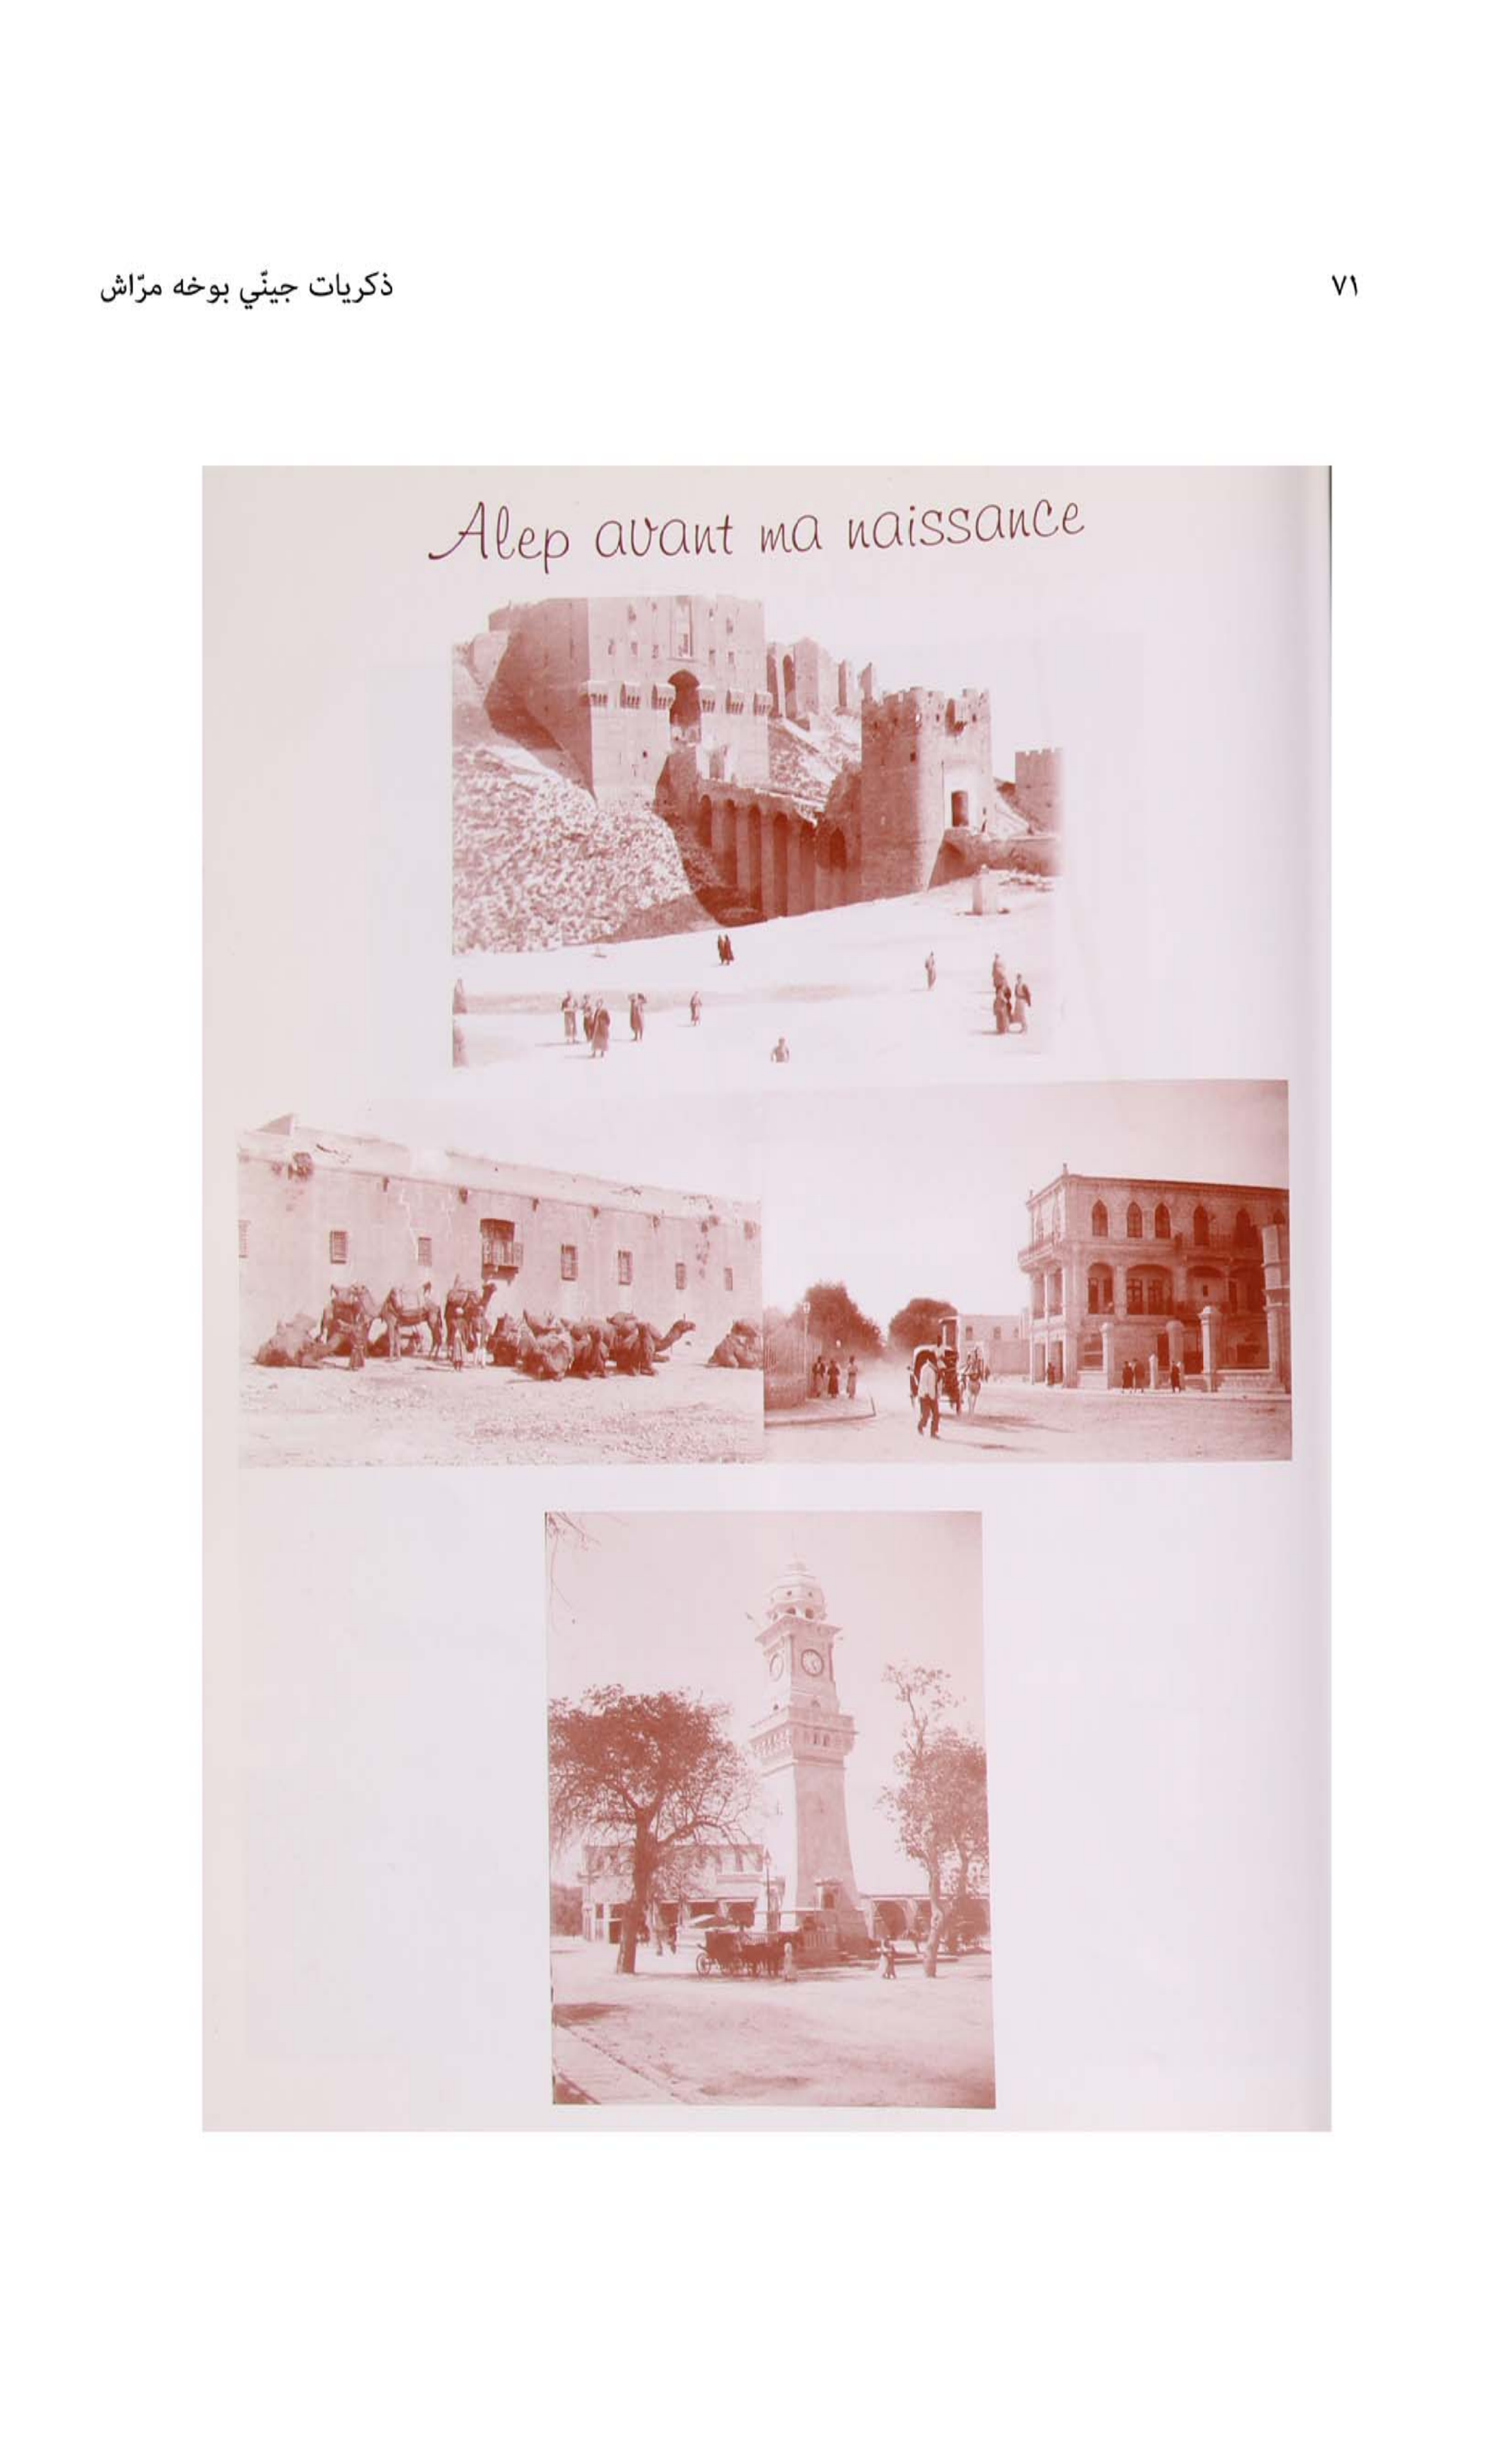 ٧١
ذكريات جينّي بوخه مرّاش
Alep avant ma naissance